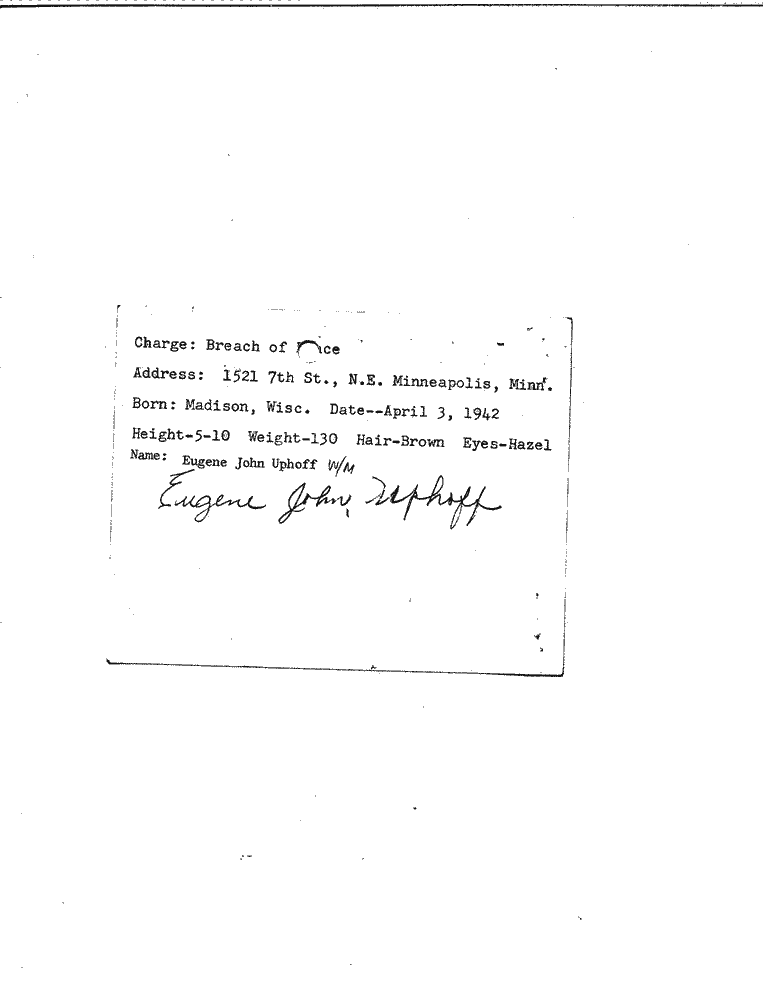 Charge: Breach of
Address: 1521 7th St., N.E. Minneapolis, Minn.
Born: Madison, Wisc. Date--April 3, 1942
Height-5-10 Weight-130 Hair-Brown Eyes-Hazel
Name: Eugene John Uphoff W/M
Eugene John Uphoff